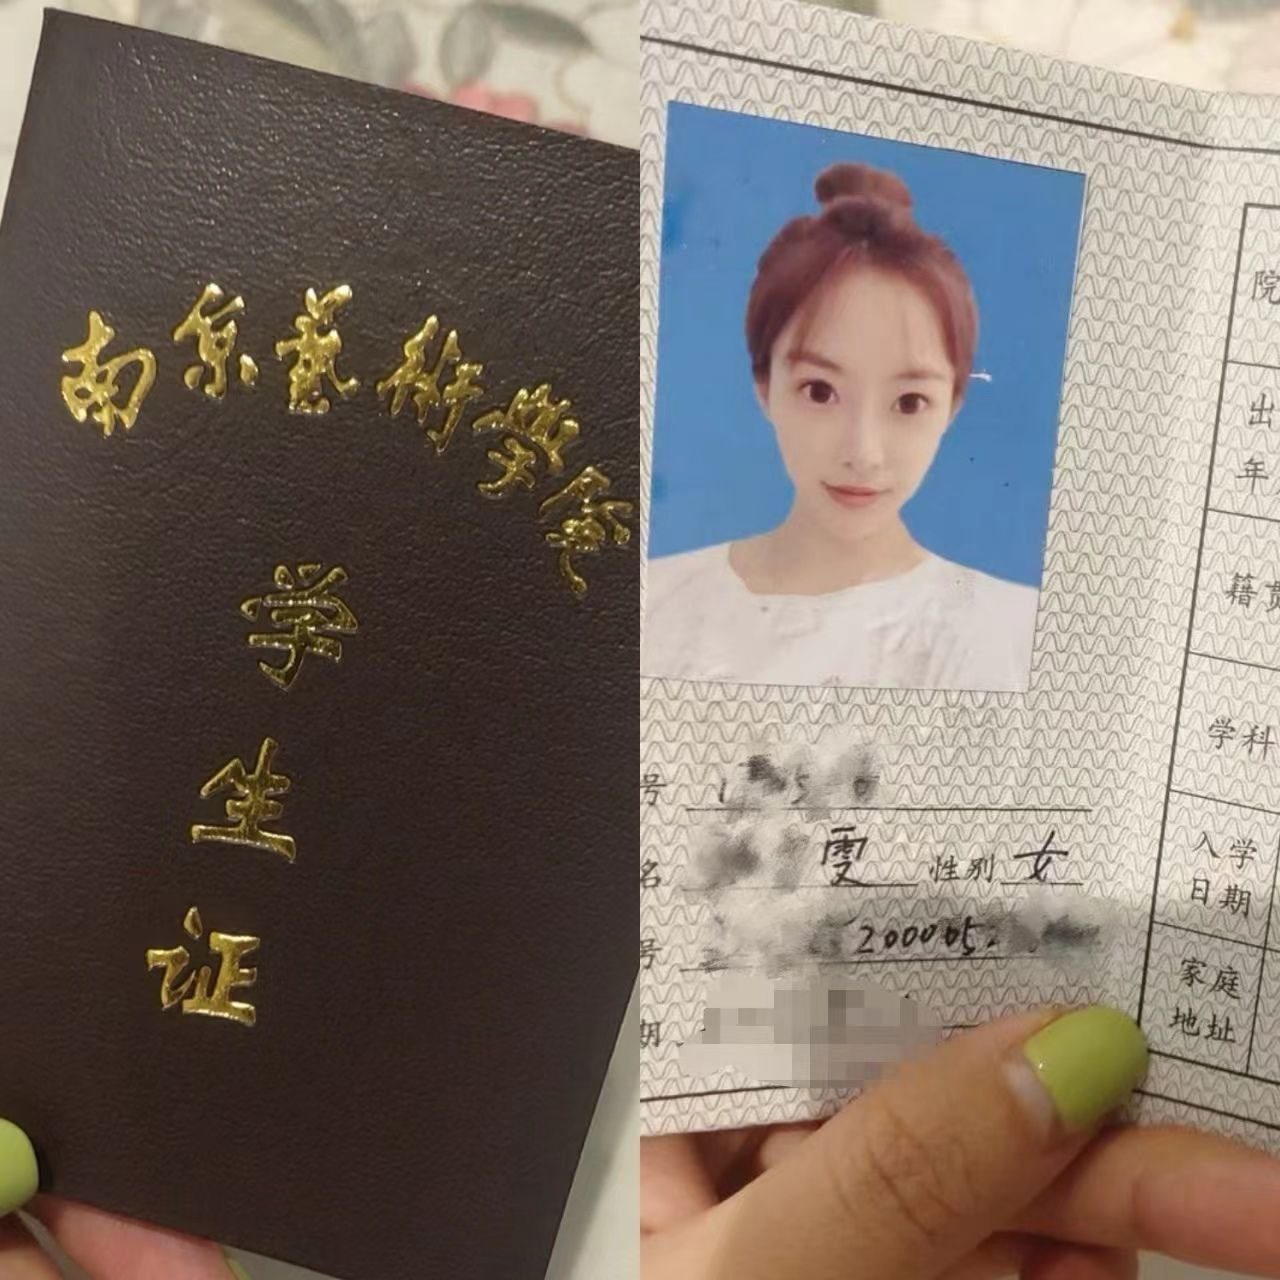 南京藝術學院
学
生
证
号
名 雯 性别 女
号 200005.
期
院
出
年
籍贯
学科
入学
日期
家庭
地址